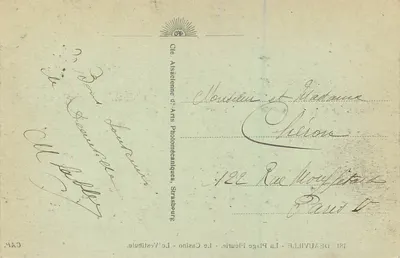 Bons Souvenirs
de Deauville
Cie Alsacienne d'Arts Photomécaniques, Strasbourg
Monsieur et Madame
Chéron
122 Rue Mouffetard
Paris V
DEAUVILLE - La Plage Fleurie. - Le Casino - Le Vestibule.
CAP